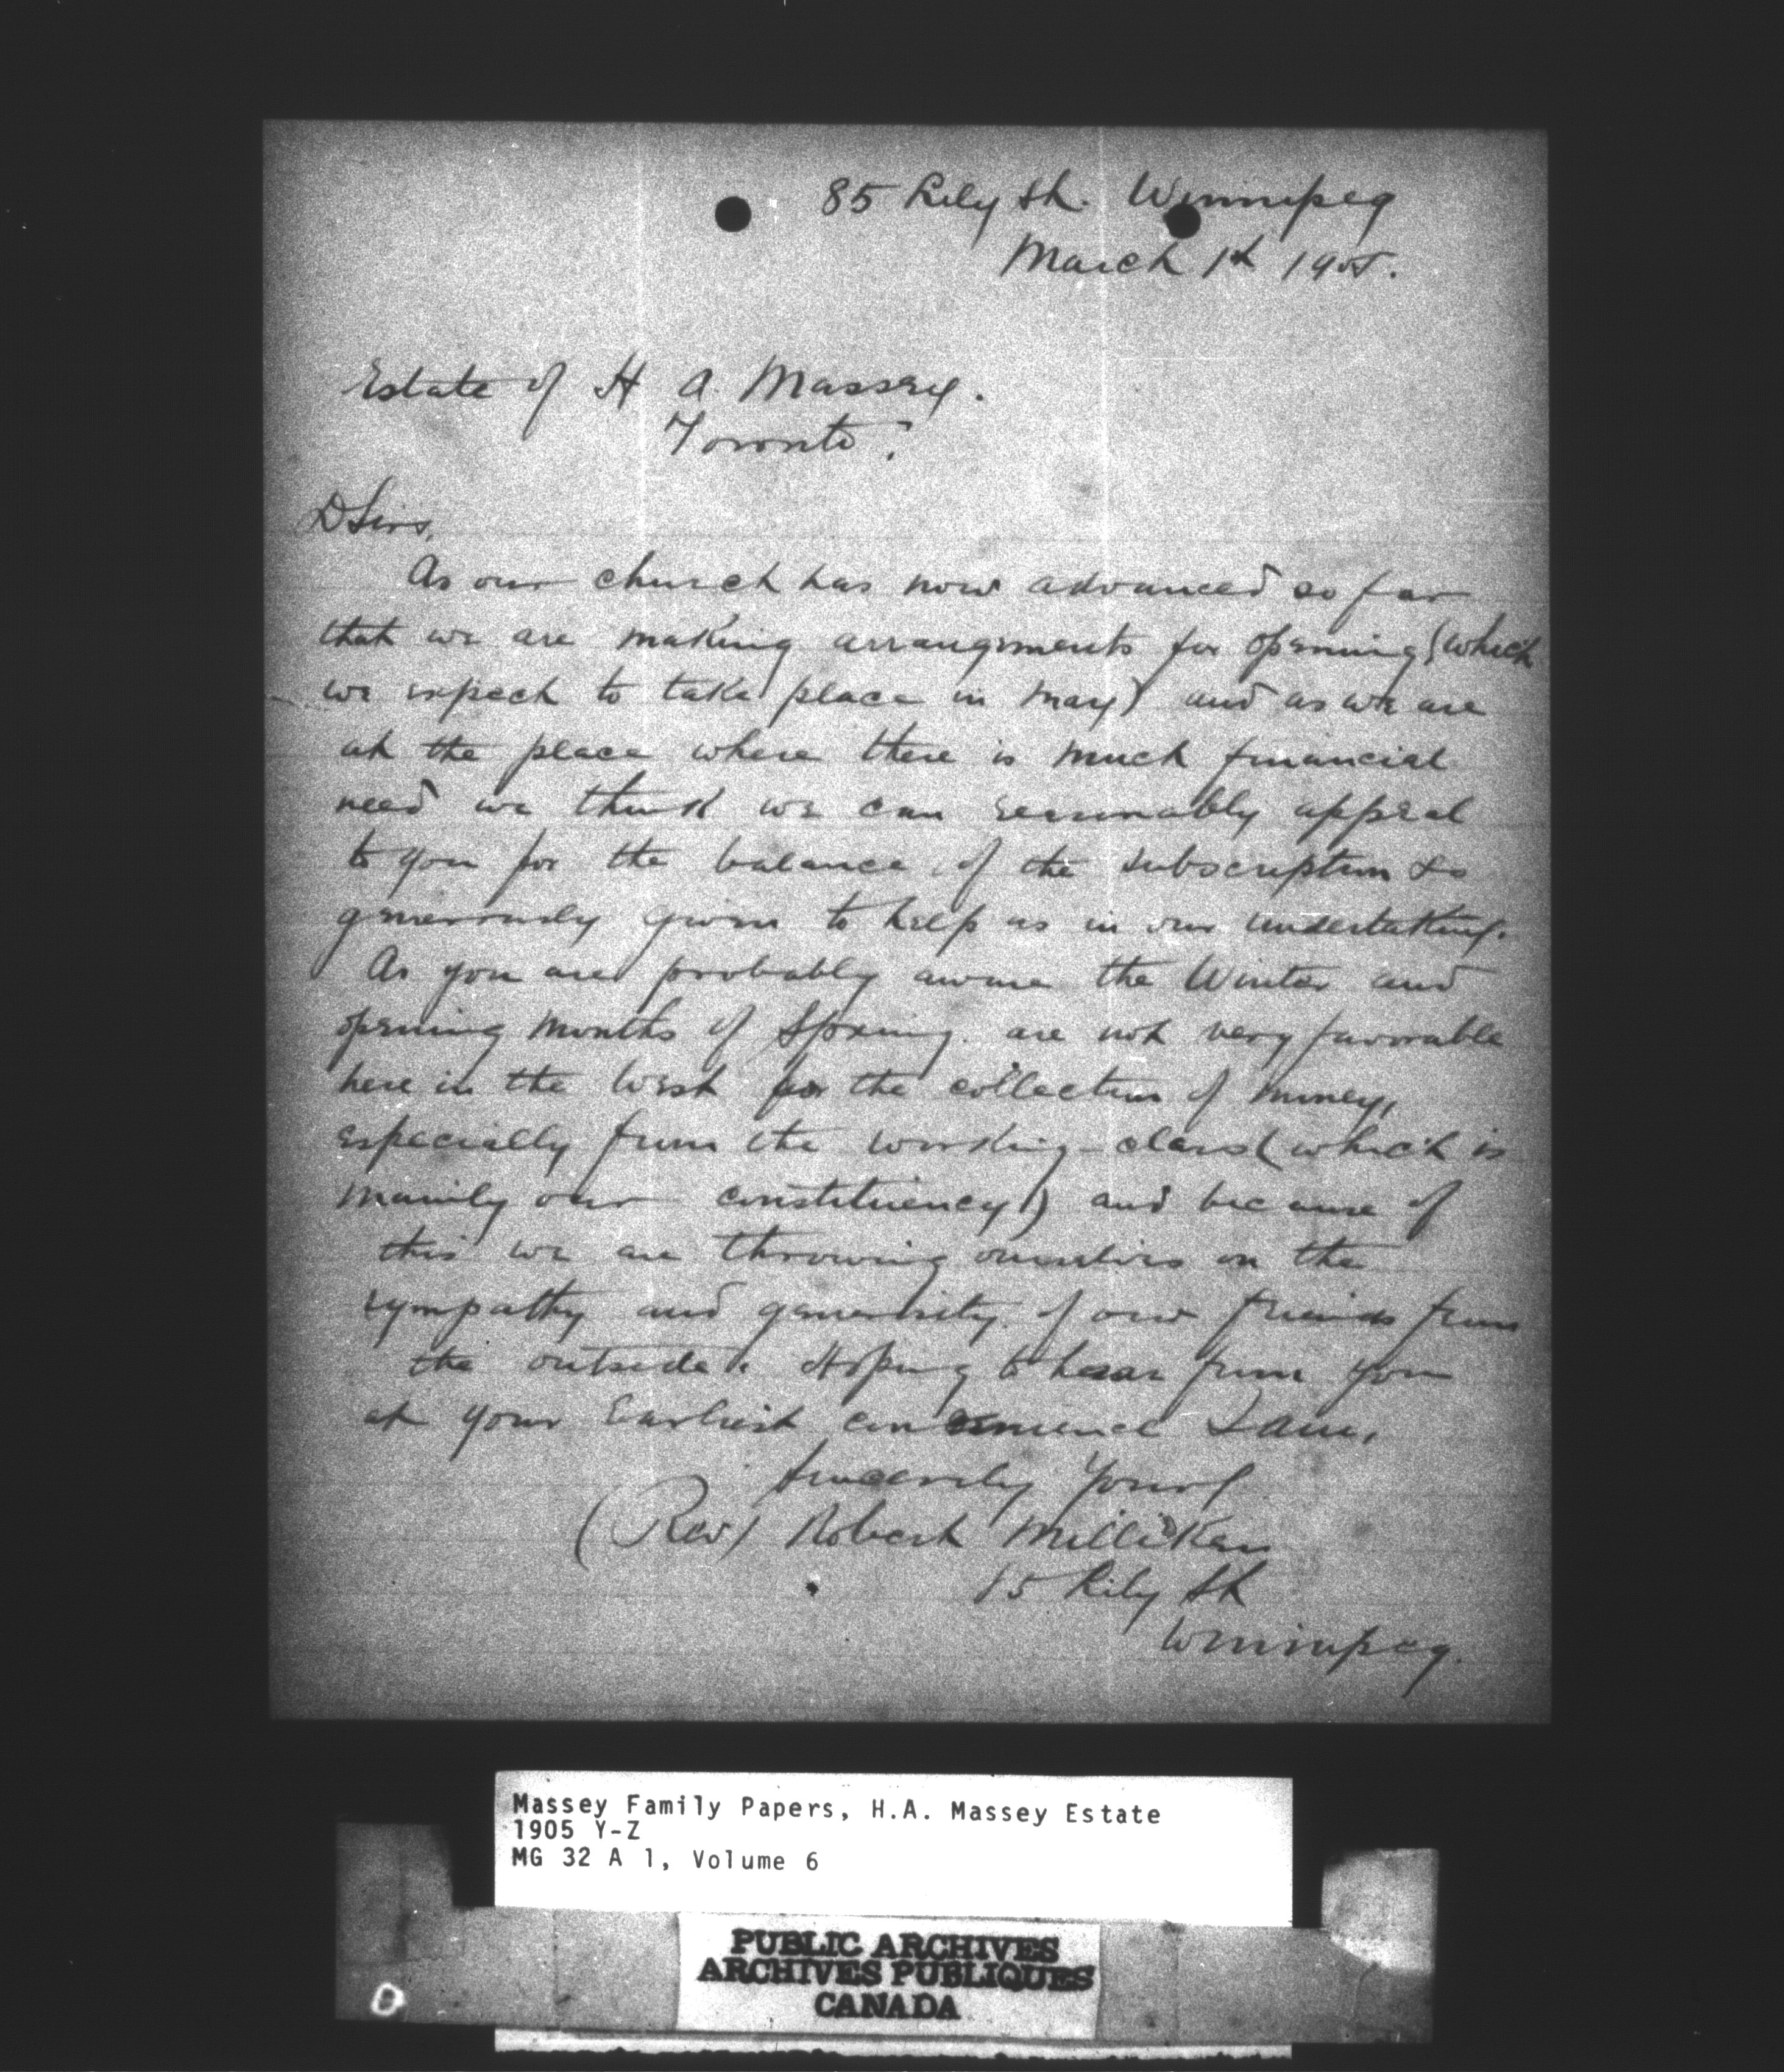 85 Lily St. Winnipeg
March 1st 1905.
Estate of H A. Massey.
Toronto.
D Sirs,
As our church has now advanced so far
that we are making arrangements for opening (which
we expect to take place in May) and as we are
at the place where there is much financial
need we think we can reasonably appeal
to you for the balance of the subscription so
generously given to help us in our undertaking.
As you are probably aware the Winter and
opening months of Spring are not very favorable
here in the West for the collection of money,
especially from the working-class (which is
mainly our constituency) and because of
this we are throwing ourselves on the
sympathy and generosity of our friends from
the outside. Hoping to hear from you
at your Earliest convenience I am,
Sincerely Yours
(Rev) Robert Milliken
85 Lily St
Winnipeg.
Massey Family Papers, H.A. Massey Estate
1905 Y-Z
MG 32 A 1, Volume 6
PUBLIC ARCHIVES
ARCHIVES PUBLIQUES
CANADA